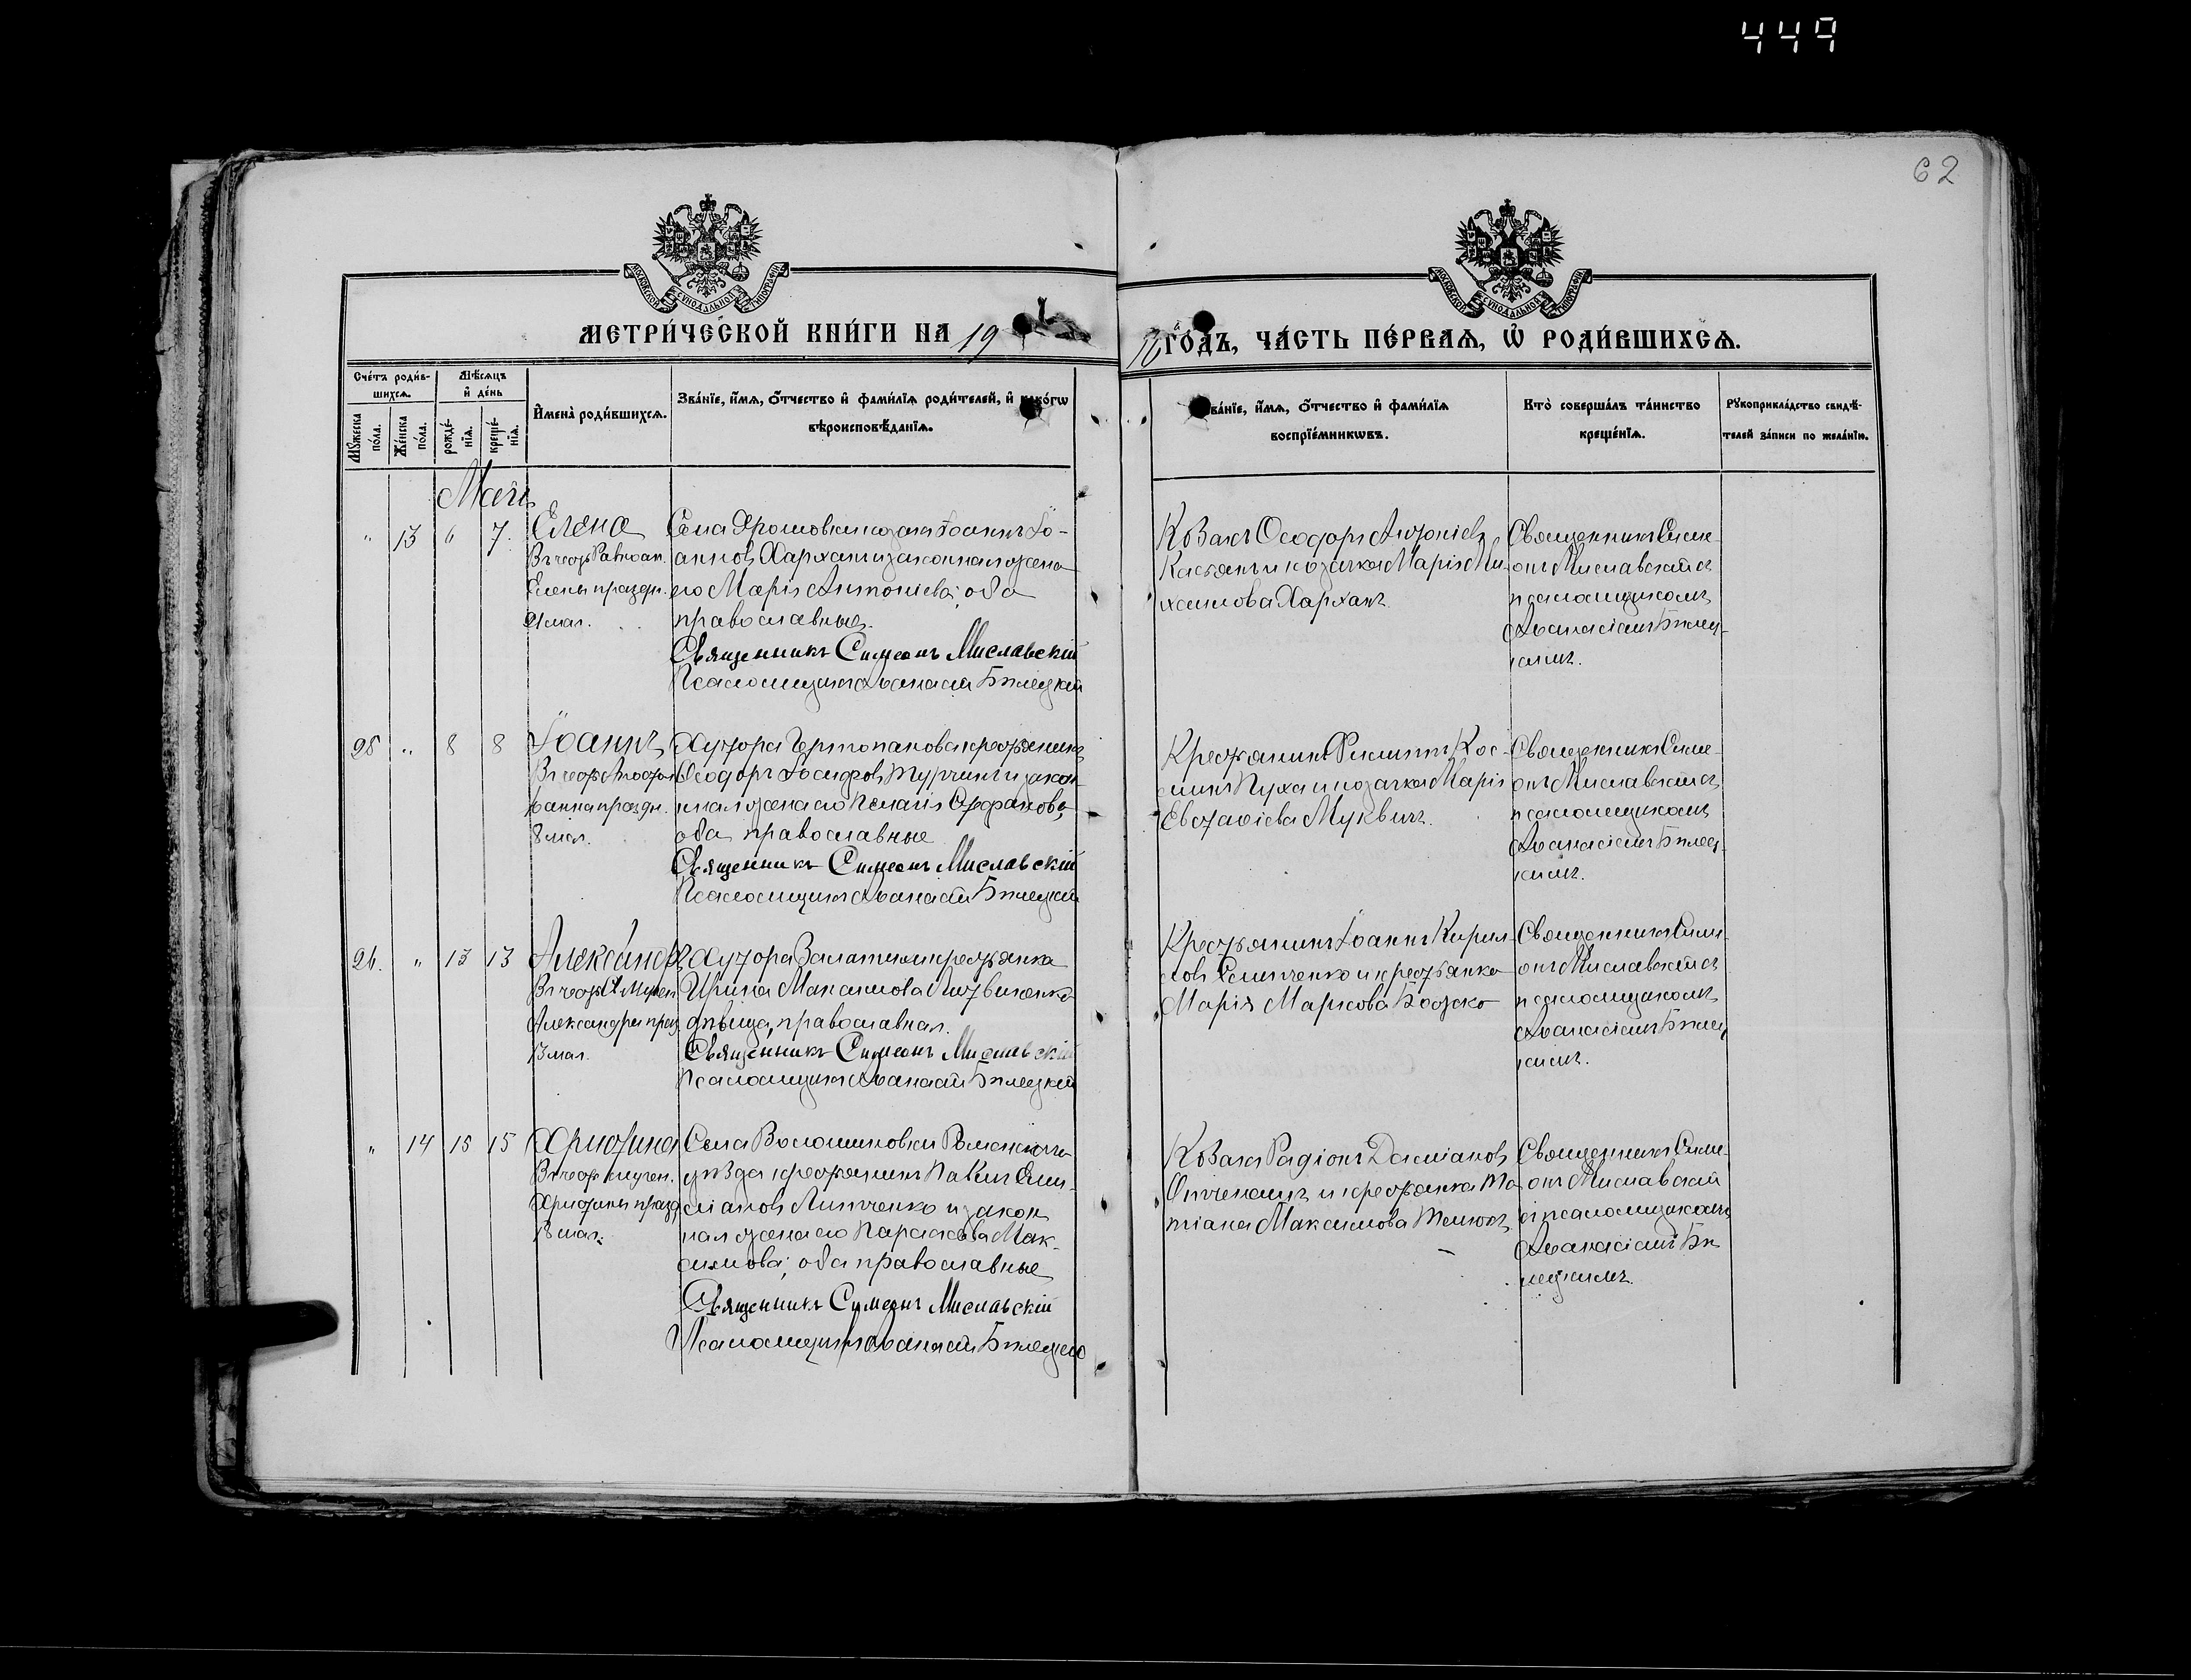 449
62
МОСКОВСКОЙ СѴНОДАЛЬНОЙ ТИПОГРАФІИ
МОСКОВСКОЙ СѴНОДАЛЬНОЙ ТИПОГРАФІИ
МЕТРИ́ЧЕСКОЙ КНИ́ГИ НА 19
12 ГО́ДЪ, ЧА́СТЬ ПЕ́РВАѦ, Ѡ҆ РОДИ́ВШИХСѦ.
Сче́тъ роди́в-
шихсѧ.
Мꙋ́жеска по́ла.
Же́нска по́ла.
Мѣ́сѧцъ
и҆ де́нь
рожде́-
нїѧ.
креще́-
нїѧ.
И҆мена̀ роди́вшихсѧ.
Зва́нїе, и҆́мѧ, ѻ҆́тчество и҆ фами́лїѧ роди́телей, и҆ како́гѡ
вѣроисповѣ́данїѧ.
Зва́нїе, и҆́мѧ, ѻ҆́тчество и҆ фами́лїѧ
воспрїе́мникѡвъ.
Кто̀ соверша́лъ та́инство
креще́нїѧ.
Рꙋкоприкла́дство свидѣ́-
телей за́писи по жела́нїю.
Май
" 13 6 7.
Елена
Въ честь Равноап.
Елены праздн.
21 мая.
Села козакъ Іоаннъ Іо-
анновъ Хархан и законная жена
его Марія Антоніева; оба
православные.
Священникъ Симеонъ Миславскій
Псаломщикъ Аѳанасій Билецкій
Козакъ Ѳеодоръ Антоніевъ
Касьянъ и козачка Марія Ми-
хаилова Хархан
Священникъ Симе-
онъ Миславскій съ
псаломщикомъ
Аѳанасіемъ Билец-
кимъ.
25 " 8 8
Іоаннъ
Въ честь Апостол.
Іоанна праздн.
8 мая.
Хутора Чертопанова крестьянинъ
Ѳеодоръ Іосифовъ Турчинъ и закон-
ная жена его Пелагія
оба православные
Священникъ Симеонъ Миславскій
Псаломщикъ Аѳанасій Билецкій
Крестьянинъ Филиппъ Кос-
минъ Пуха и козачка Марія
Евстаѳіева
Священникъ Симе-
онъ Миславскій съ
псаломщикомъ
Аѳанасіемъ Билец-
кимъ.
26. " 13 13
Александръ
Въ честь Св. Мучен.
Александра праз.
13 мая.
Хутора крестьянка
Ирина Максимова Литвиненко
дѣвица, православная.
Священникъ Симеонъ Миславскій
Псаломщикъ Аѳанасій Билецкій
Крестьянинъ Іоаннъ Кирил-
ловъ и крестьянка
Марія Маркова
Священникъ Симе-
онъ Миславскій съ
псаломщикомъ
Аѳанасіемъ Билец-
кимъ.
" 14 15 15
Христина
Въ честь мучен.
Христины празд.
18 мая.
Села Волошиновки Роменскаго
уѣзда крестьянинъ Павелъ Еми-
ліановъ Липченко и закон-
ная жена его Параскева Мак-
симова; оба православные
Священникъ Симеонъ Миславскій
Псаломщикъ Аѳанасій Билецкій
Козакъ Радіонъ Даміановъ
и крестьянка Та-
тіана Максимова
Священникъ Симе-
онъ Миславскій
съ псаломщикомъ
Аѳанасіемъ Би-
лецкимъ.